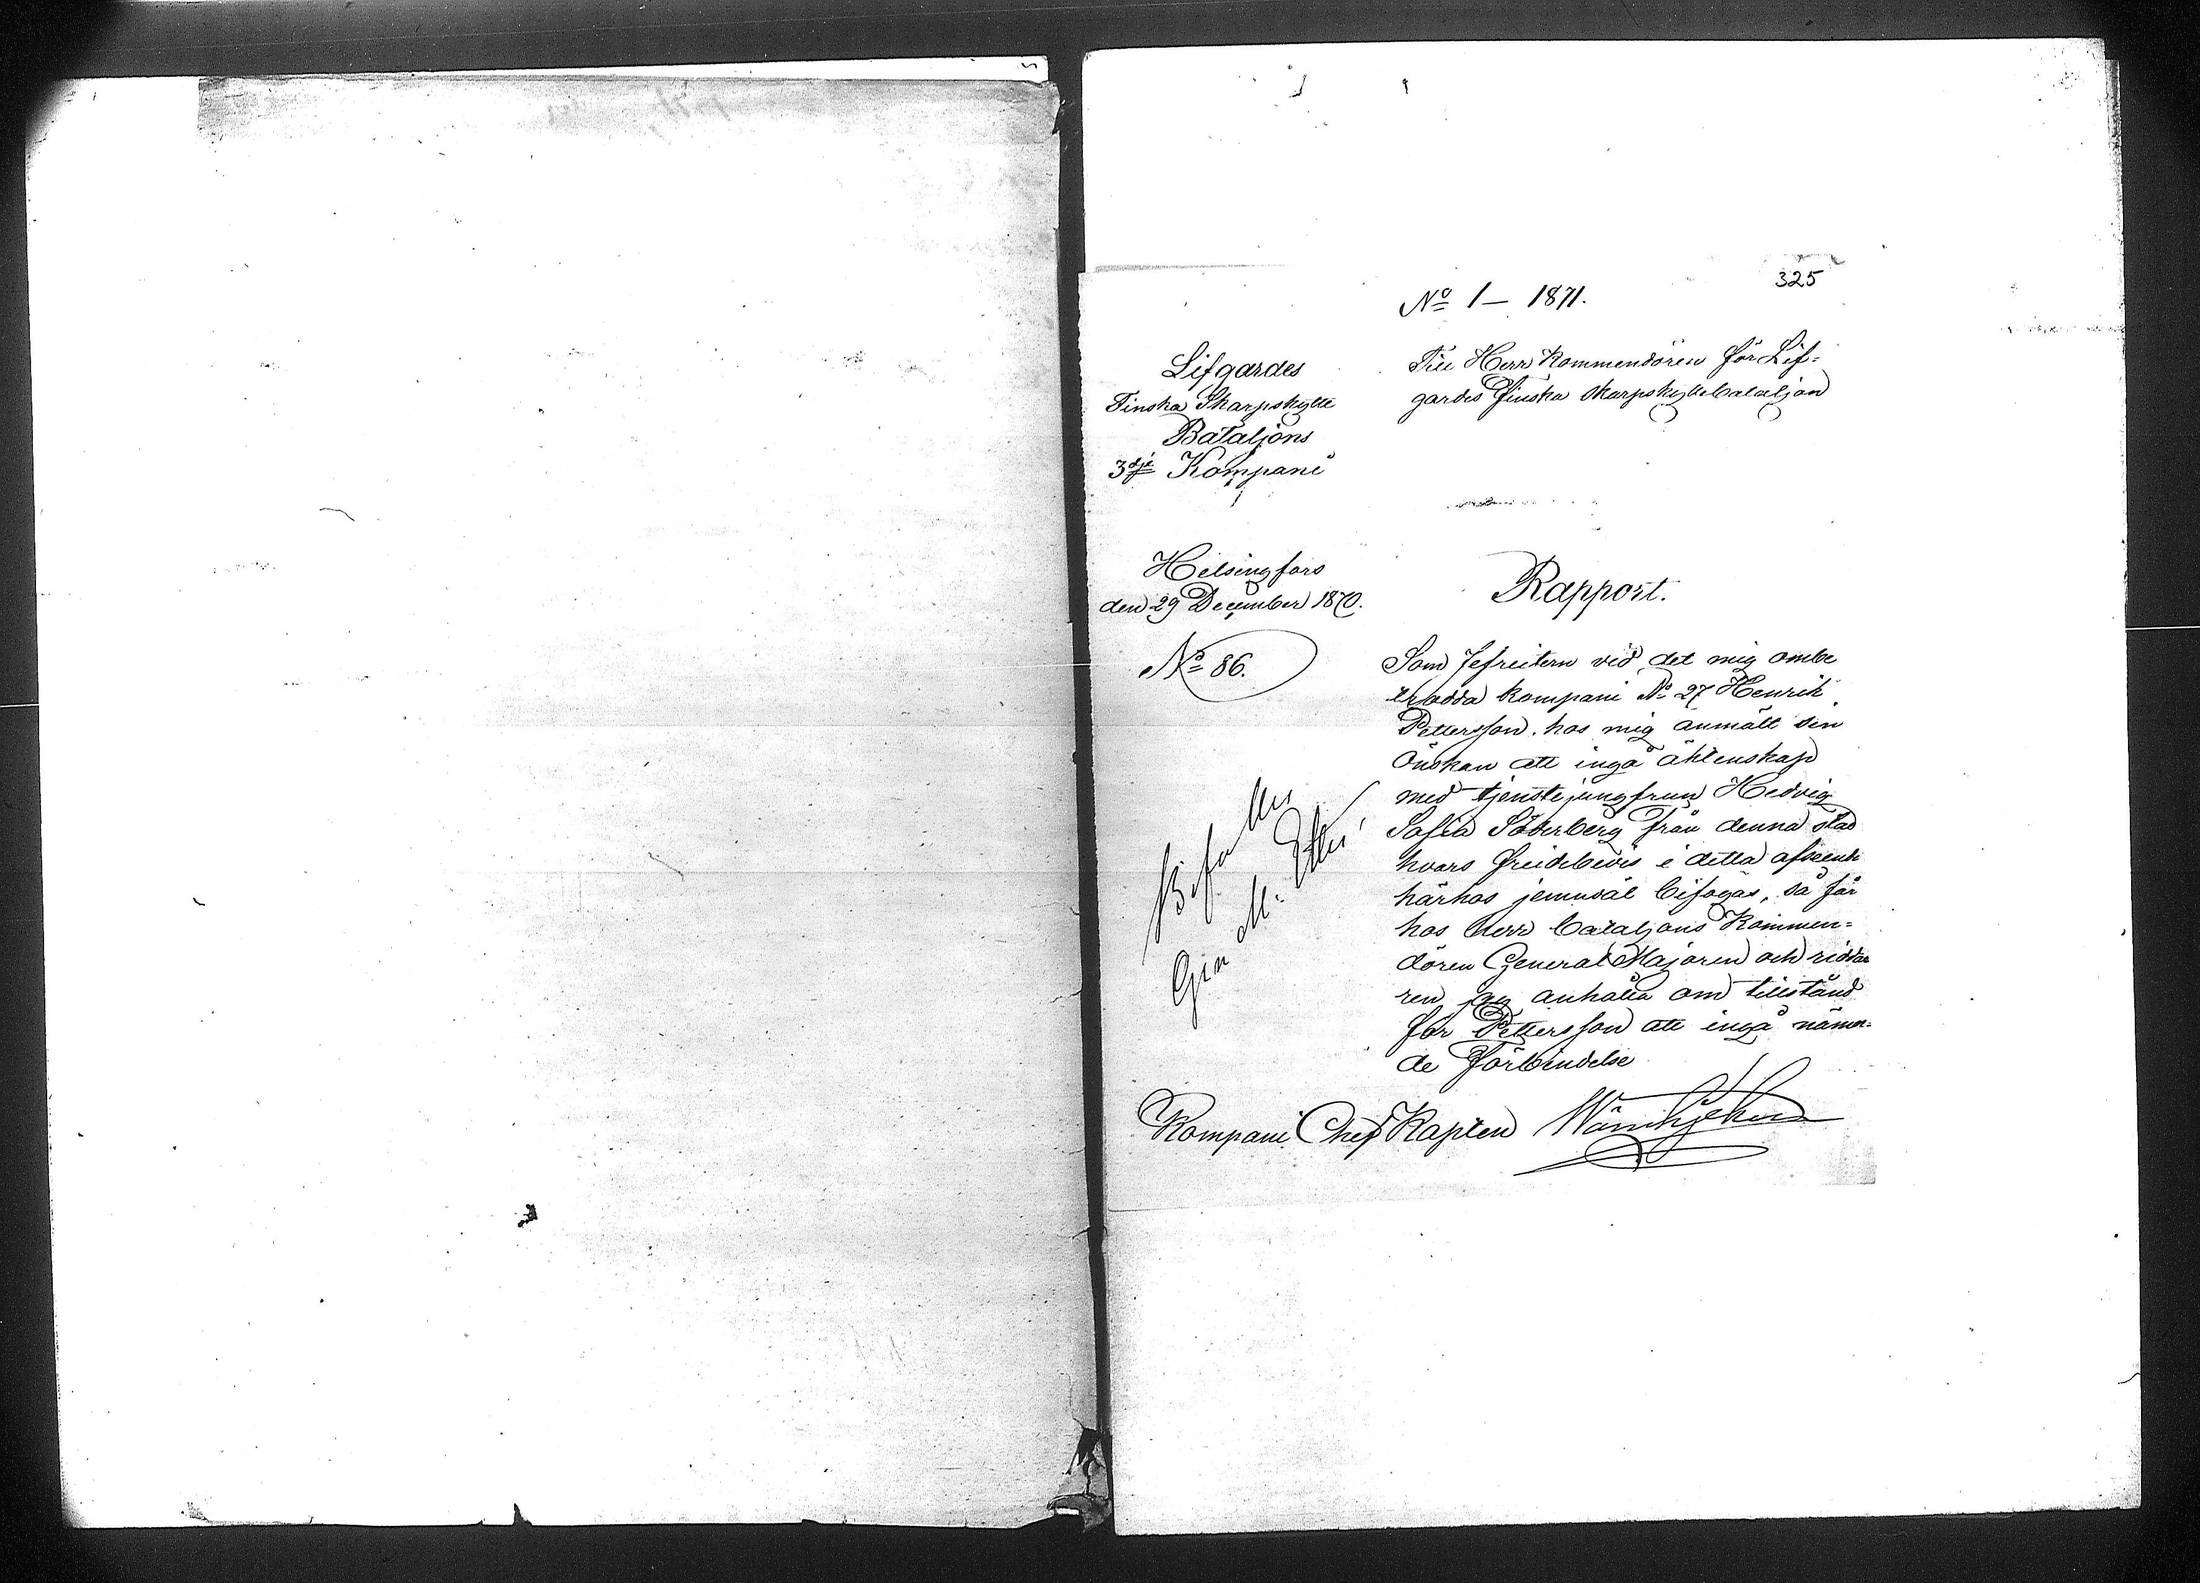 325
No 1 — 1871.
Lifgardes
Finska Skarpskytte
Bataljons
3dje Kompani
Till Herr Kommendören för Lif-
gardes Finska Skarpskyttebataljon
Helsingfors
den 29 December 1870.
No 86.
Rapport.
Som Jefreitern vid det mig ombe
trodda kompani No 27 Henrik
Pettersson hos mig anmält sin
önskan att ingå äktenskap
med tjenstejungfrun Hedvig
Sofia Söderberg från denna stad
hvars freidebevis i detta afseende
härhos jemväl bifogas, så får
hos Herr bataljons Kommen-
dören General Majoren och ridda
ren jag anhålla om tillstånd
för Pettersson att ingå nämn-
de förbindelse
Bifalles
G M.
Kompani Chef Kapten